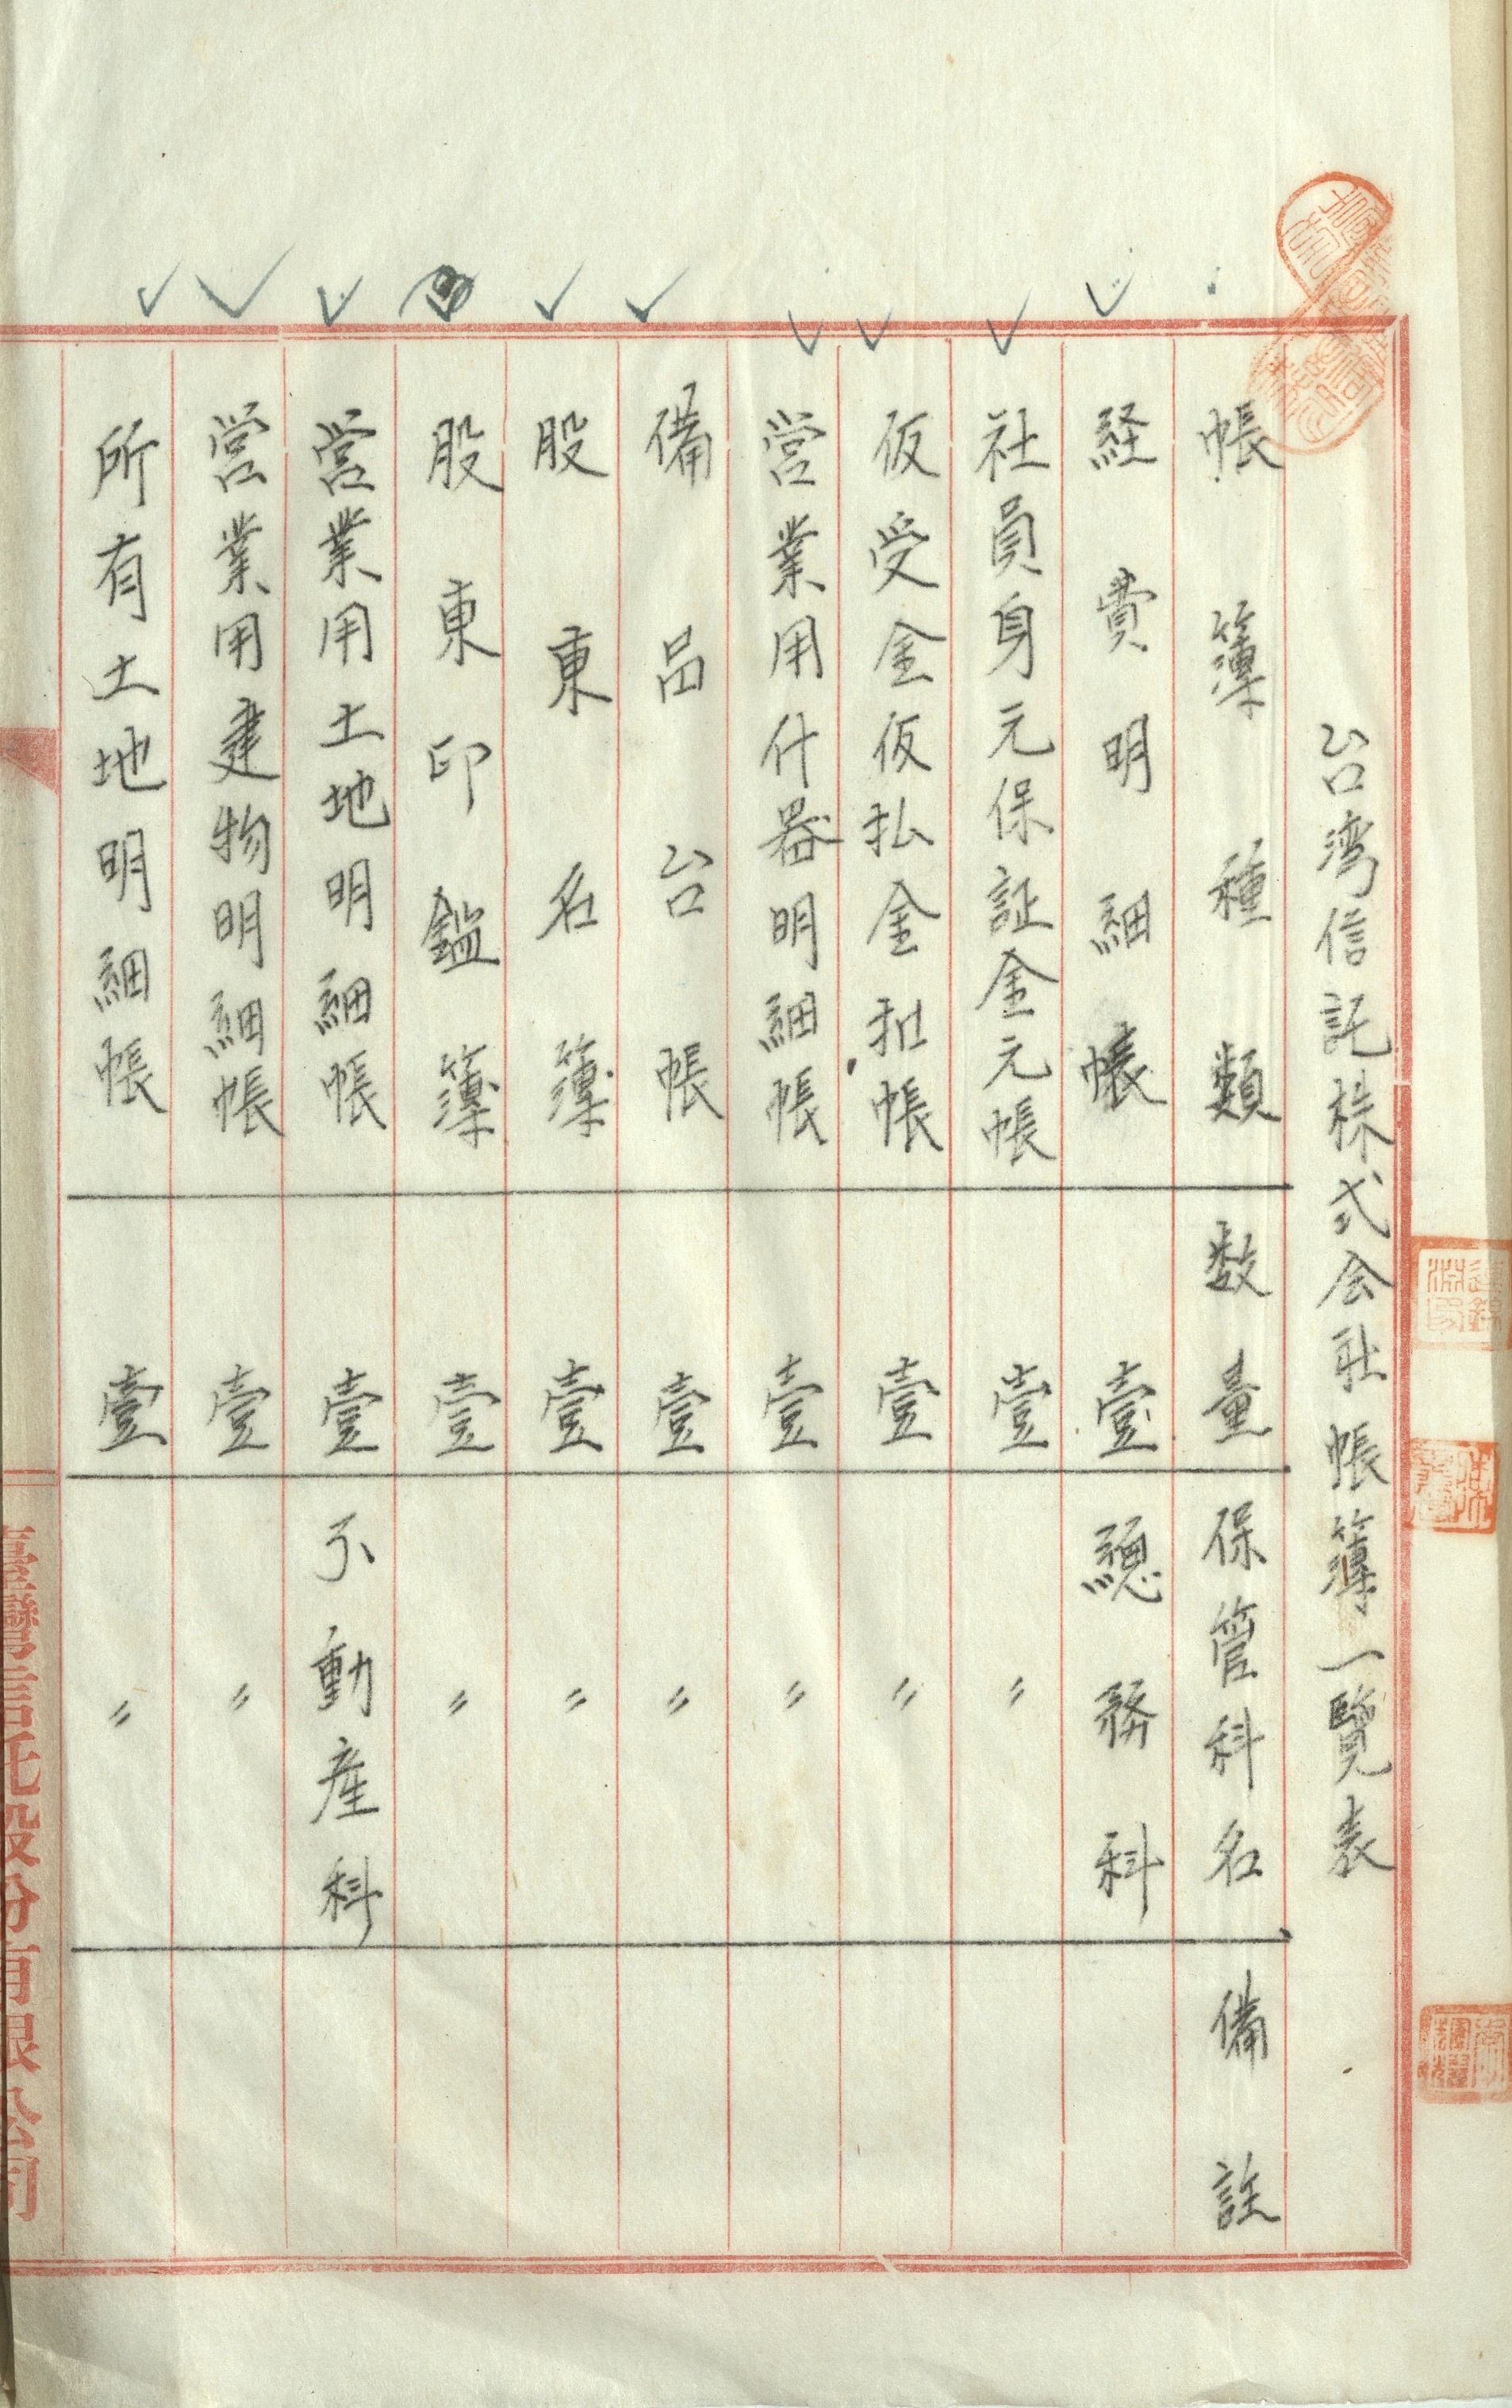 台湾信託株式会社帳簿一覽表
帳簿種類 数量 保管科名 備註
経費明細帳 壹 總務科
社員身元保証金元帳 壹 〃
仮受金仮払金扣帳 壹 〃
営業用什器明細帳 壹 〃
備品台帳 壹 〃
股東名簿 壹 〃
股東印鑑簿 壹 〃
営業用土地明細帳 壹 不動産科
営業用建物明細帳 壹 〃
所有土地明細帳 壹 〃
臺灣信託股份有限公司